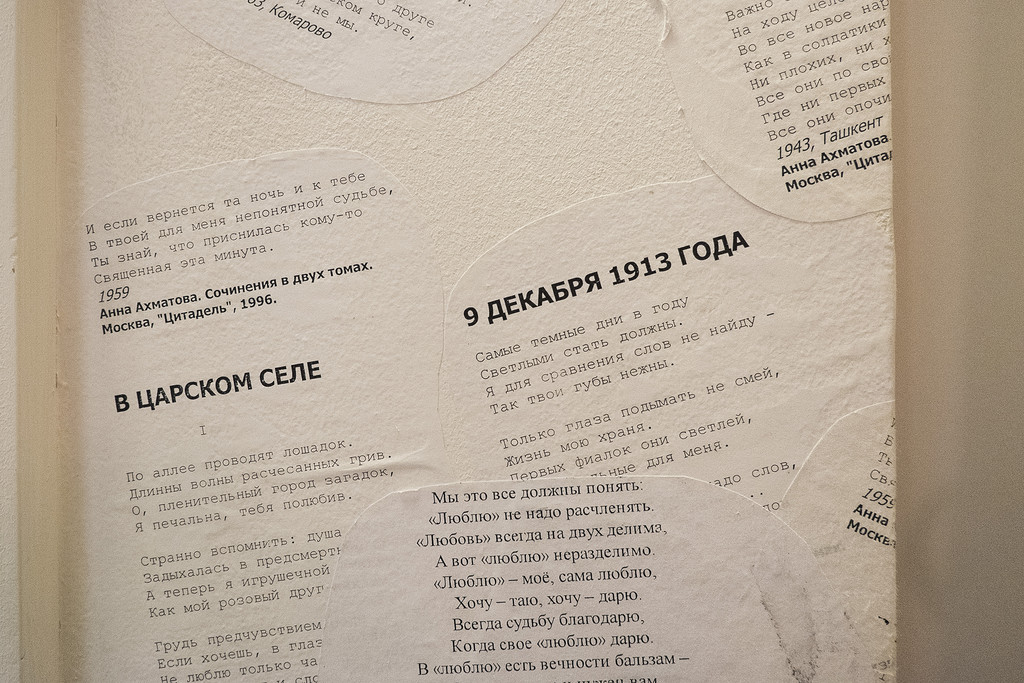 о друге
ком круге,
и не мы.
03, Комарово
Важно
На ходу
Во все новое
Как в солдатики
Ни плохих, ни
Все они по
Где ни первых
Все они
1943, Ташкент
Анна Ахматова.
Москва,
И если вернется та ночь и к тебе
В твоей для меня непонятной судьбе,
Ты знай, что приснилась кому-то
Священная эта минута.
1959
Анна Ахматова. Сочинения в двух томах.
Москва, "Цитадель", 1996.
В ЦАРСКОМ СЕЛЕ
I
По аллее проводят лошадок.
Длинны волны расчесанных грив.
О, пленительный город загадок,
Я печальна, тебя полюбив.
Странно вспомнить: душа
Задыхалась в
А теперь я игрушечной
Как мой розовый друг
Грудь предчувствием
Если хочешь, в глаз
Не люблю только ча
9 ДЕКАБРЯ 1913 ГОДА
Самые темные дни в году
Светлыми стать должны.
Я для сравнения слов не найду –
Так твои губы нежны.
Только глаза подымать не смей,
Жизнь мою храня.
Первых фиалок они светлей,
для меня.
надо слов,
Мы это все должны понять:
«Люблю» не надо расчленять.
«Любовь» всегда на двух делима,
А вот «люблю» неразделимо.
«Люблю» – моё, сама люблю,
Хочу – таю, хочу – дарю.
Всегда судьбу благодарю,
Когда свое «люблю» дарю.
В «люблю» есть вечности бальзам –
1959
Анна
Москва